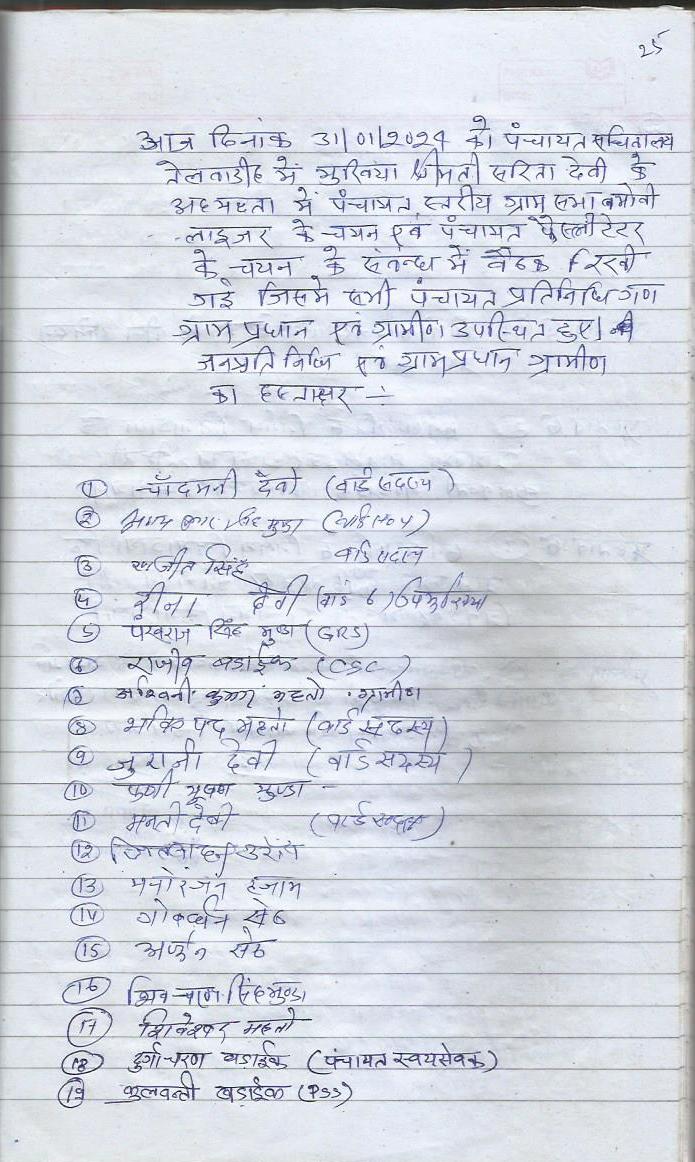 25
आज दिनांक 31/01/2024 को पंचायत सचिवालय
तेलवाडीह में मुखिया श्रीमती सरिता देवी के
अध्यक्षता में पंचायत स्तरीय ग्राम सभा
लाइजर के चयन एवं पंचायत
के चयन के संबन्ध में बैठक रखी
गई जिसमे सभी पंचायत प्रतिनिधि गण
ग्राम प्रधान एवं ग्रामीण उपस्थित हुए।
जनप्रतिनिधि एवं ग्राम प्रधान ग्रामीण
का हस्ताक्षर :-
① चाँदमनी देवी (वार्ड सदस्य)
②
③ रणजीत सिंह वार्ड सदस्य
④ देवी (वार्ड 6) उपमुखिया
⑤ पंखराज सिंह मुण्डा (GRS)
⑥ राजीव बड़ाईक (CSC)
⑦ अश्विनी कुमार महतो ग्रामीण
⑧ भक्ति पद महतो (वार्ड सदस्य)
⑨ जुरानी देवी (वार्ड सदस्य)
⑩ फणी भूषण मुण्डा
⑪ मनती देवी (वार्ड सदस्य)
⑫
⑬ मनोरंजन हजाम
⑭ गोवर्धन सेठ
⑮ अर्जुन सेठ
⑯ शिव चरण सिंह मुण्डा
⑰ महतो
⑱ दुर्गाचरण बड़ाईक (पंचायत स्वयसेवक)
⑲ कुलवन्ती बड़ाईक (PSS)